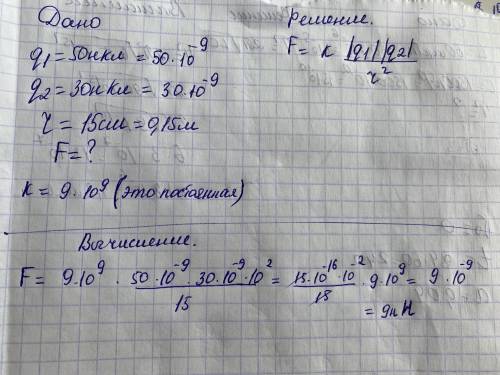 Дано
q1 = 50нкл = 50·10⁻⁹
q2 = 30нкл = 30·10⁻⁹
r = 15см = 0,15м
F = ?
k = 9·10⁹ (это постоянная)
Решение.
F = k |q1||q2| / r²
Вычисление.
F = 9·10⁹ · 50·10⁻⁹·30·10⁻⁹·10² / 15 = 15·10⁻¹⁶·10⁻² / 15 · 9·10⁹ = 9·10⁻⁹
= 9нН